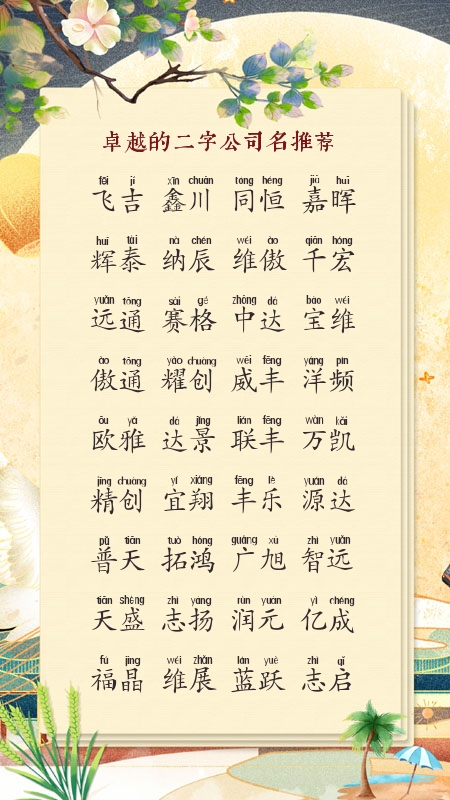 卓越的二字公司名推荐
fēi jí xīn chuān tóng héng jiā huī
飞吉 鑫川 同恒 嘉晖
huī tài nà chén wéi ào qiān hóng
辉泰 纳辰 维傲 千宏
yuǎn tōng sài gé zhōng dá bǎo wéi
远通 赛格 中达 宝维
ào tōng yào chuàng wēi fēng yáng pín
傲通 耀创 威丰 洋频
ōu yǎ dá jǐng lián fēng wàn kǎi
欧雅 达景 联丰 万凯
jīng chuàng yí xiáng fēng lè yuán dá
精创 宜翔 丰乐 源达
pǔ tiān tuò hóng guǎng xù zhì yuǎn
普天 拓鸿 广旭 智远
tiān shèng zhì yáng rùn yuán yì chéng
天盛 志扬 润元 亿成
fú jīng wéi zhǎn lán yuè zhì qǐ
福晶 维展 蓝跃 志启